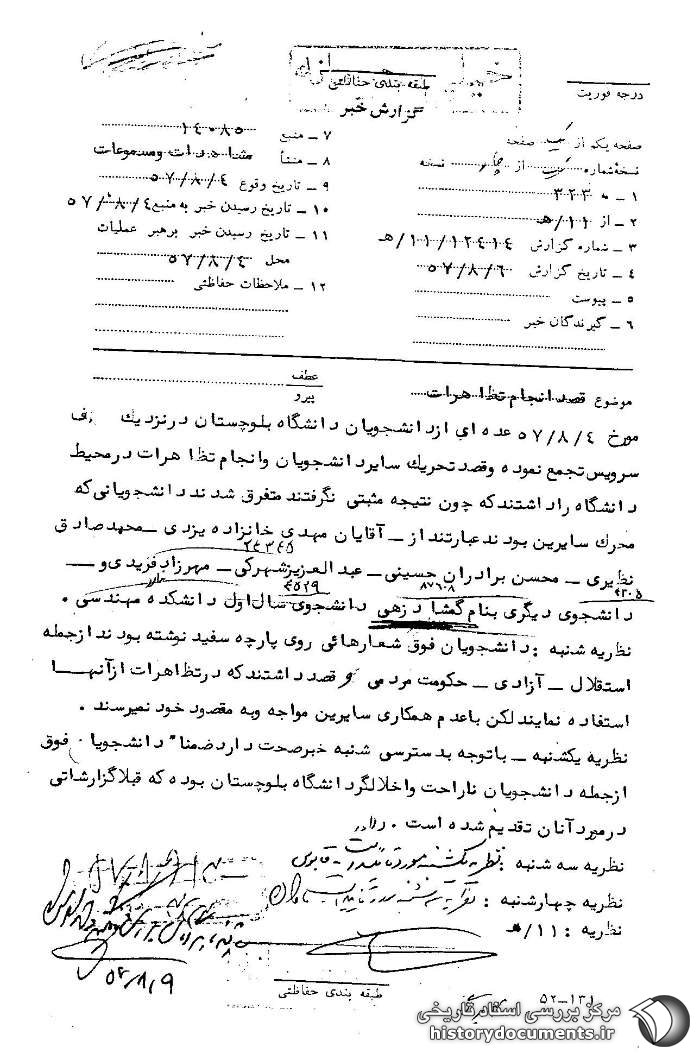 خیلی محرمانه
طبقه بندی حفاظتی
گزارش خبر
درجه فوریت
صفحه یکم از یک صفحه
نسخه شماره یک از چهار نسخه
۱ ـ به ۳۲۳
۲ ـ از ۱۱/هـ
۳ ـ شماره گزارش ۱۲۴۱۴/۱۱/هـ
۴ ـ تاریخ گزارش ۵۷/۸/۶
۵ ـ پیوست
۶ ـ گیرندگان خبر
۷ ـ منبع ۱۴۰۸۵
۸ ـ منشأ مشاهدات ومسموعات
۹ ـ تاریخ وقوع ۵۷/۸/۴
۱۰ ـ تاریخ رسیدن خبر به منبع ۵۷/۸/۴
۱۱ ـ تاریخ رسیدن خبر برهبر عملیات
محل ۵۷/۸/۴
۱۲ ـ ملاحظات حفاظتی
موضوع قصد انجام تظاهرات
عطف
پیرو
مورخ ۵۷/۸/۴ عده ای ازدانشجویان دانشگاه بلوچستان درنزدیك
سرویس تجمع نموده وقصد تحریك سایردانشجویان وانجام تظاهرات درمحیط
دانشگاه راداشتندکه چون نتیجه مثبتی نگرفتند متفرق شدند دانشجویانی که
محرك سایرین بودند عبارتند از ـ آقایان مهدی خانزاده یزدی ـ محمدصادق
۲۴۳۴۵
نظیری ـ محسن برادران حسینی ـ عبدالعزیزشهرکی ـ مهرزاد فریدی و ـ
۴۵۲۹ ۸۷۶۰۸ ۴۳۰۵
دانشجوی دیگری بنام گمشادزهی دانشجوی سال اول دانشکده مهندسی .
نظریه شنبه : دانشجویان فوق شعارهائی روی پارچه سفید نوشته بودند ازجمله
استقلال ـ آزادی ـ حکومت مردمی و قصد داشتندکه درتظاهرات ازآنها
استفاده نمایند لکن باعدم همکاری سایرین مواجه وبه مقصود خود نمیرسند .
نظریه یکشنبه ـ باتوجه بدسترسی شنبه خبرصحت دارد ضمنا" دانشجویا. فوق
ازجمله دانشجویان ناراحت واخلالگردانشگاه بلوچستان بوده که قبلاگزارشاتی
درمورد آنان تقدیم شده است .
نظریه سه شنبه : نظریه یکشنبه مورد تائید است
نظریه چهارشنبه : نظریه سه شنبه مورد تائید است
نظریه ۱۱/هـ :
۵۷/۸/۹
طبقه بندی حفاظتی
۵۲-۱۳۱
مرکز بررسی اسناد تاریخی
historydocuments.ir